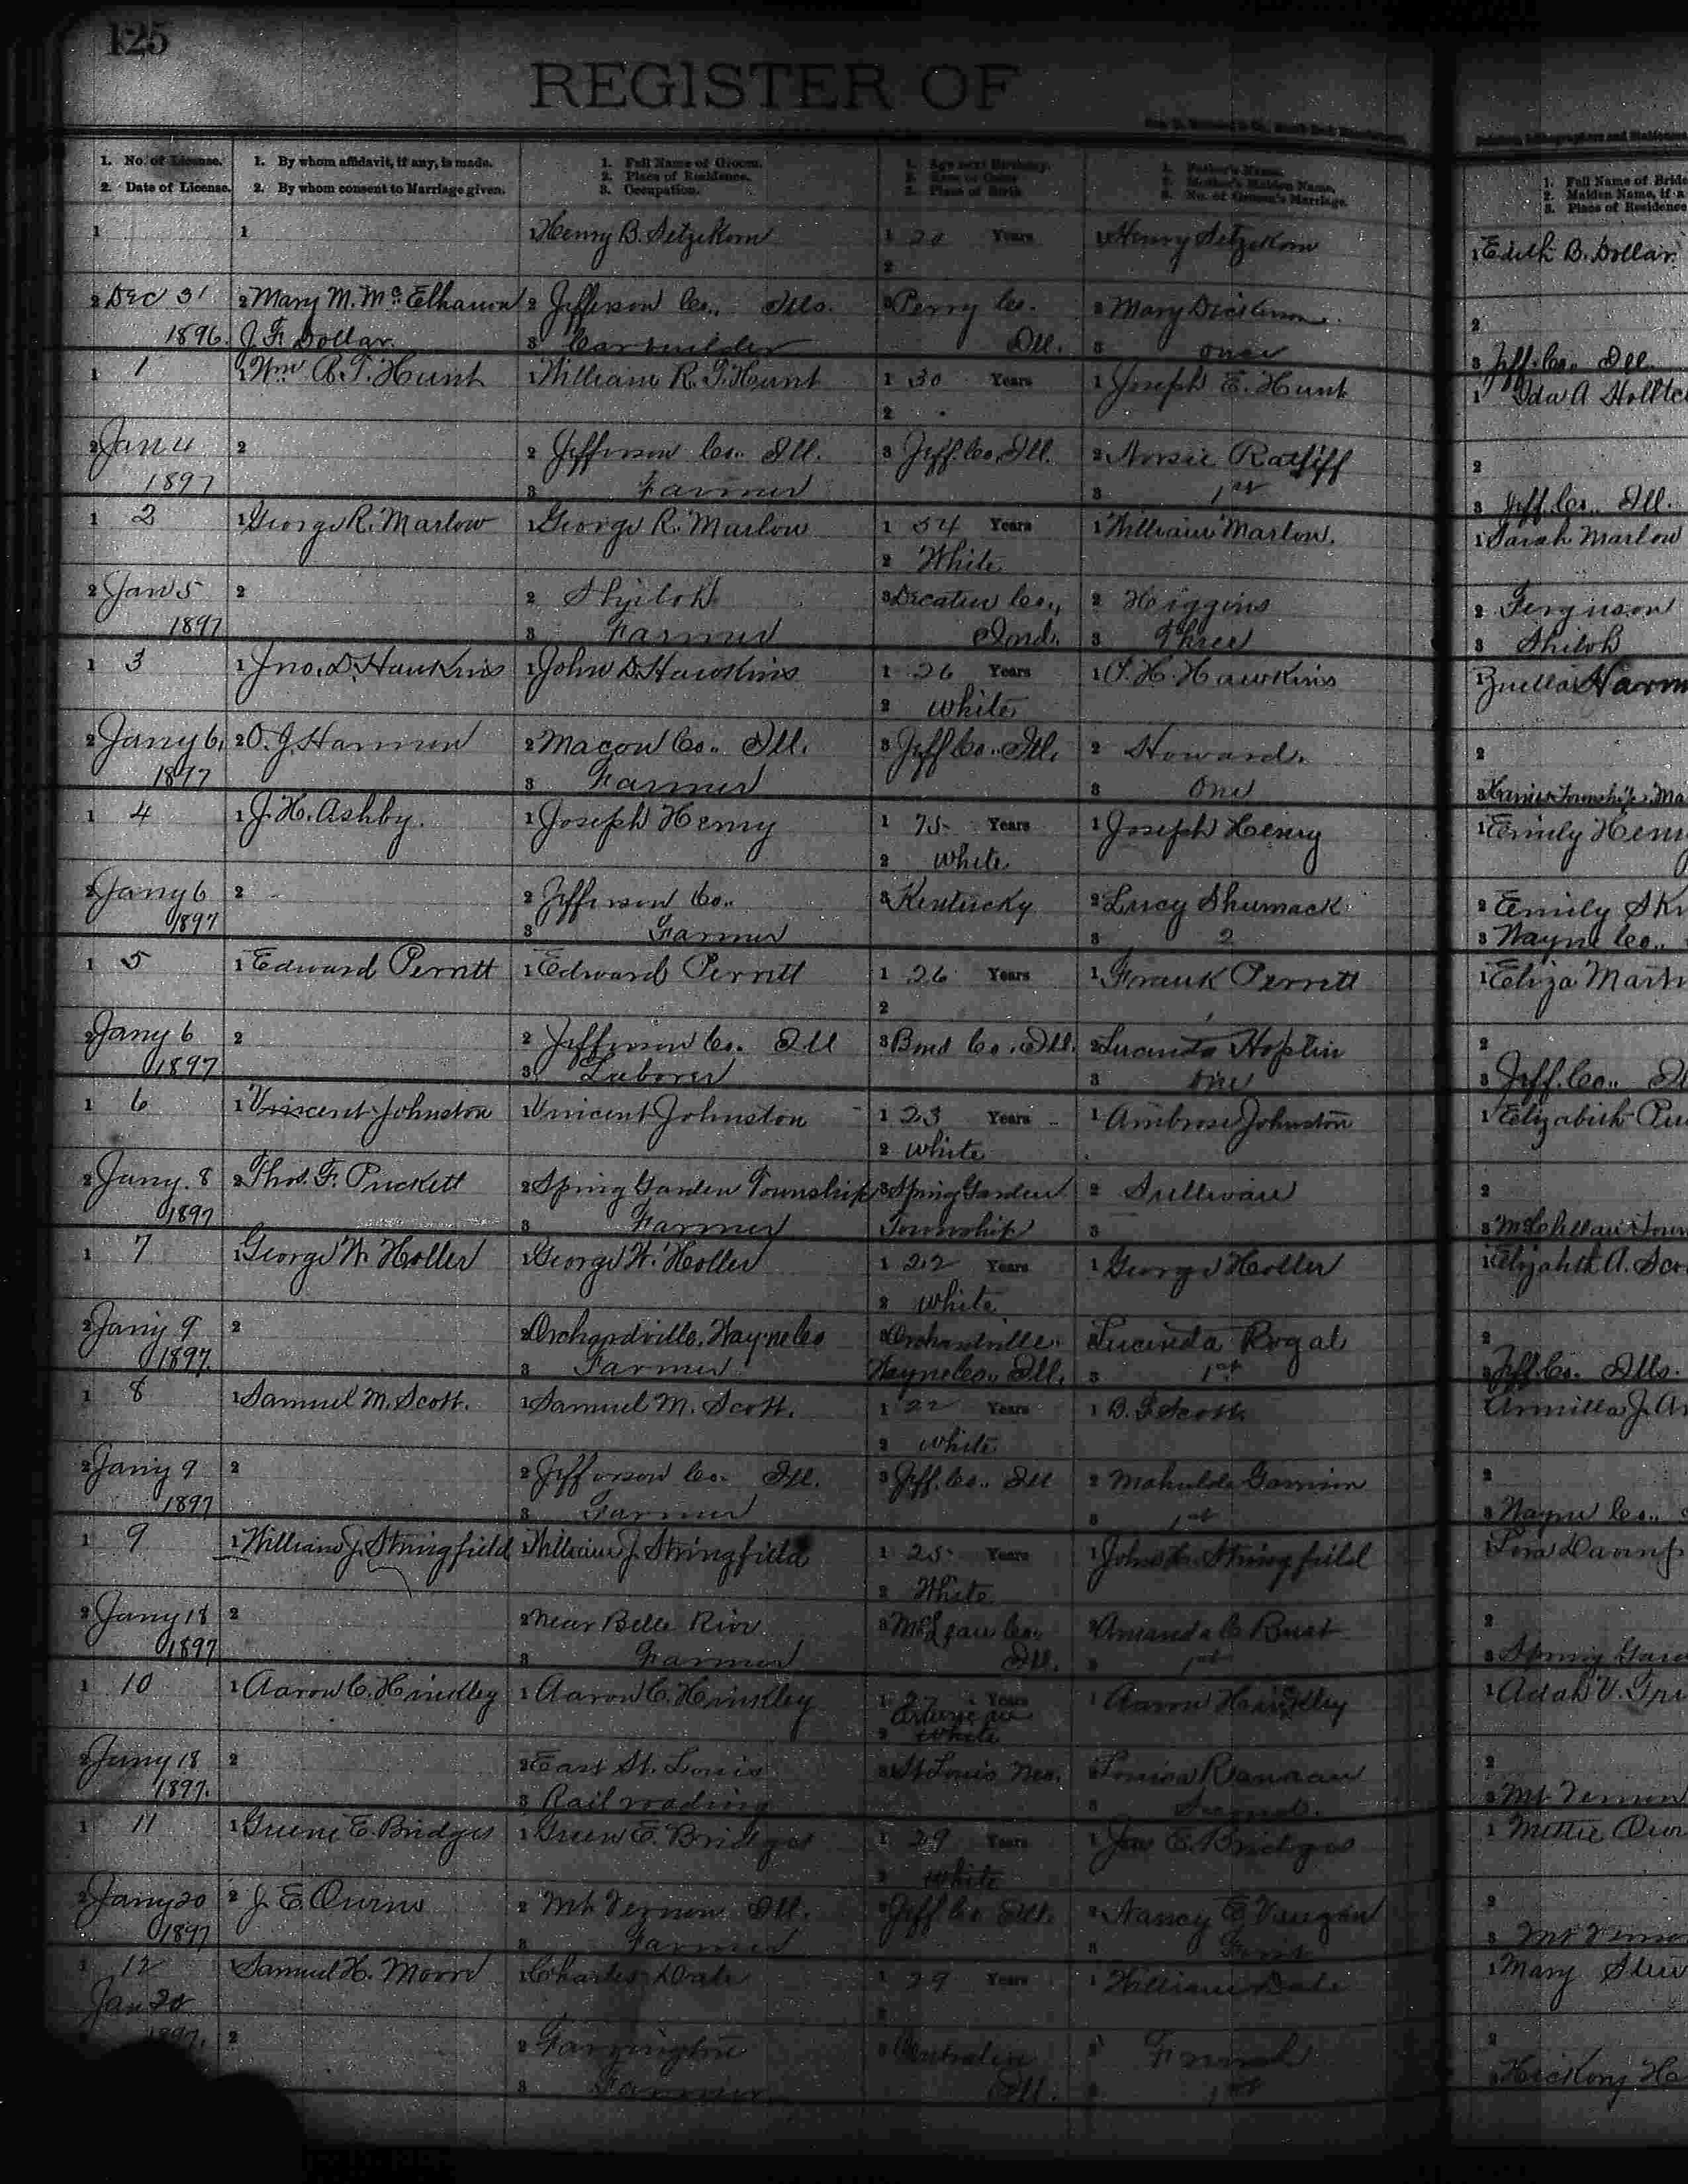 125
REGISTER OF
1. No. of License. 2. Date of License.
1. By whom affidavit, if any, is made. 2. By whom consent to Marriage given.
1. Full Name of Groom. 2. Place of Residence. 3. Occupation.
1. Age next Birthday. 2. Race or Color 3. Place of Birth
1. Father's Name. 2. Mother's Maiden Name. 3. No. of Groom's Marriage.
1. Full Name of Bride 2. Maiden Name, if a 3. Place of Residence
1 1 1 Henry B. Setzekorn 1 20 Years 1 Henry Setzekorn 1 Edith B. Dollar
2
2 Dec 31 2 Mary M. Mc Elhanon 2 Jefferson Co., Ills. 3 Perry Co. 2 Mary Dickinson 2
1896. J. F. Dollar. 3 Carbuilder Ill. 3 once 3 Jeff. Co. Ill.
1 1 1 Wm R. T. Hunt 1 William R. T. Hunt 1 30 Years 1 Joseph E. Hunt 1 Ida A
2
2 Jan 4 2 2 Jefferson Co. Ill. 3 Jeff. Co. Ill. 2 Ratliff 2
1897 3 Farmer 3 1st 3 Jeff Co. Ill.
1 2 1 George R. Marlow 1 George R. Marlow 1 54 Years 1 William Marlow. 1 Sarah Marlow
2 White
2 Jan 5 2 2 Shiloh 3 Decatur Co., 2 Higgins 2 Ferguson
1897 3 Farmer Ind. 3 Three 3 Shiloh
1 3 1 Jno. D. Hawkins 1 John D. Hawkins 1 26 Years 1 Hawkins 1 Zuella Harm
2 white
2 Jany 6, 2 O. J. Harmon 2 Macon Co. Ill. 3 Jeff Co. Ill. 2 Howard. 2
1897 3 Farmer 3 One 3 Township, Ma
1 4 1 J. H. Ashby. 1 Joseph Henry 1 75 Years 1 Joseph Henry 1 Emily Henr
2 white
2 Jany 6 2 2 Jefferson Co. 3 Kentucky 2 Lucy Shumack 2 Emily Sk
1897 3 Farmer 3 2 3 Wayne Co.,
1 5 1 Edward Perritt 1 Edward Perritt 1 26 Years 1 Frank Perritt 1 Eliza Mart
2
2 Jany 6 2 2 Jefferson Co. Ill 3 Bond Co. Ill. 2 Lucinda Hoplin 2
1897 3 Laborer 3 One 3 Jeff. Co.
1 6 1 Vincent Johnston 1 Vincent Johnston 1 23 Years 1 Ambrose Johnston 1 Elizabeth Pu
2 white
2 Jany. 8 2 Thos. F. Puckett 2 Spring Garden Township 3 Spring Garden 2 Sullivan 2
1897 3 Farmer Township 3 3 McClellan Town
1 7 1 George W. Holler 1 George W. Holler 1 22 Years 1 George Holler 1 Elizabeth A. Sco
2 white
2 Jany 9 2 2 Orchardville, Wayne Co 3 Orchardville 2 Lucinda Rogal 2
1897. 3 Farmer Wayne Co. Ill. 3 1st 3 Jeff. Co. Ills.
1 8 1 Samuel M. Scott. 1 Samuel M. Scott. 1 22 Years 1 B. F. Scott 1 Armilla J. Ar
2 white
2 Jany 9 2 2 Jefferson Co. Ill. 3 Jeff. Co. Ill 2 Mahulda Garrison 2
1897 3 Farmer 3 1st 3 Wayne Co.,
1 9 1 William J. Stringfield 1 William J. Stringfield 1 25 Years 1 John Stringfield 1
2 White
2 Jany 18 2 2 Near Belle Rive 3 McLean Co. 2 Amanda C 2
1897 3 Farmer Ill. 3 1st 3 Spring Gard
1 10 1 Aaron C. Hinckley 1 Aaron C. Hinckley 1 27 Years 1 Aaron Hinckley 1 Adah V.
2 white
2 Jany 18 2 2 East St. Louis 3 St Louis Mo. 2 Louisa 2
1897. 3 Railroading 3 Second. 3 Mt Vernon
1 11 1 Greene E. Bridges 1 Green E. Bridges 1 29 Years 1 Jas E. Bridges 1 Mettie Owe
2 white
2 Jany 20 2 J. E. Owens 2 Mt Vernon Ill. 3 Jeff Co Ill. 2 Nancy E Vaughn 2
1897 3 Farmer 3 First 3 Mt Verno
1 12 Samuel H. Moore 1 Charles Dale 1 29 Years 1 William Dale 1 Mary
Jan 20 2
1897. 2 2 Farrington 3 Centralia 2 2
3 Farmer Ill. 3 1st 3 Hickory H